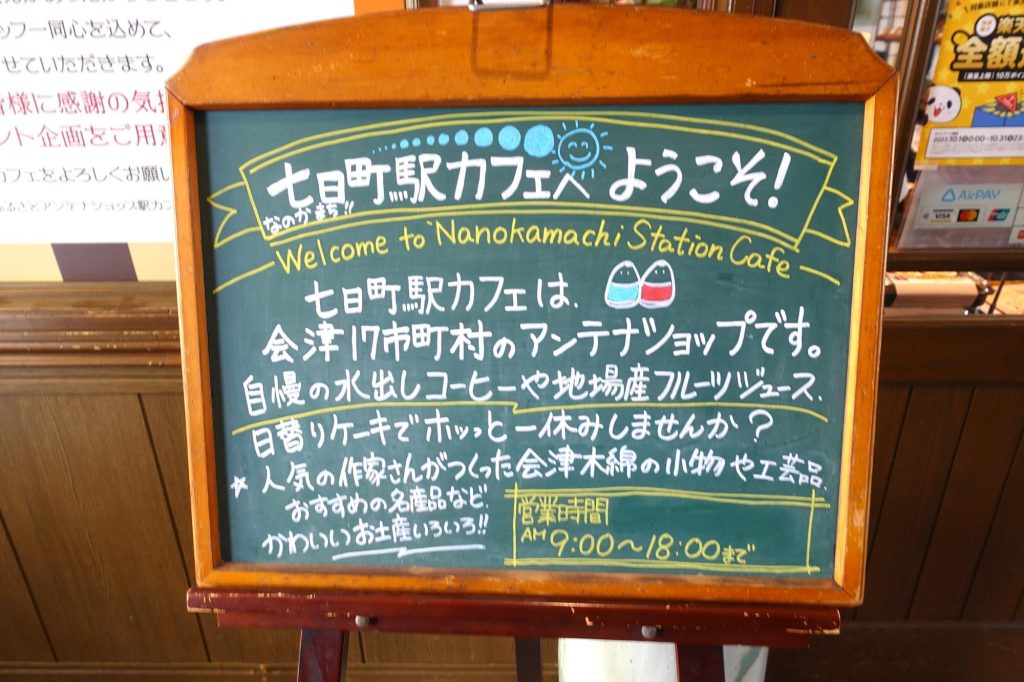 ッフ一同心を込めて、
せていただきます。
様に感謝の気持
ント企画をご用意
カフェをよろしくお願い
七日町駅カフェへ ようこそ!
なのかまち!!
Welcome to Nanokamachi Station Cafe
七日町駅カフェは、
会津17市町村のアンテナショップです。
自慢の水出しコーヒーや地場産フルーツジュース、
日替りケーキでホッっと一休みしませんか?
☆人気の作家さんがつくった会津木綿の小物や工芸品、
おすすめの名産品など、
かわいいお土産いろいろ!!
営業時間
AM 9:00〜18:00まで
楽天
全額
AirPAY
VISA